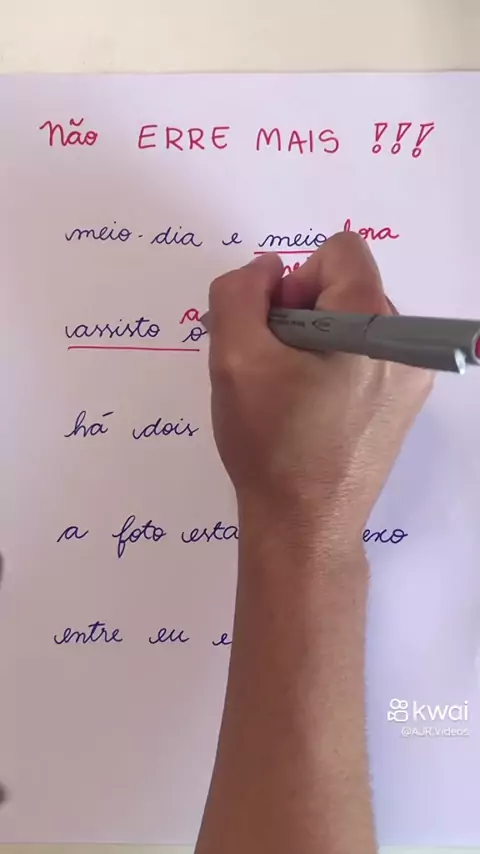 Não ERRE MAIS !!!
meio-dia e meio hora
a
assisto o
há dois
a foto esta exo
entre eu e
kwai
@AJR.Videos